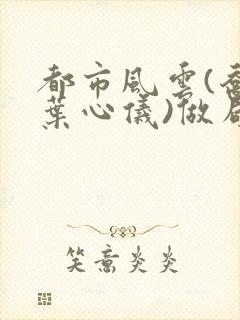 都市風雲(喬
葉心儀)做局
笑意炎炎